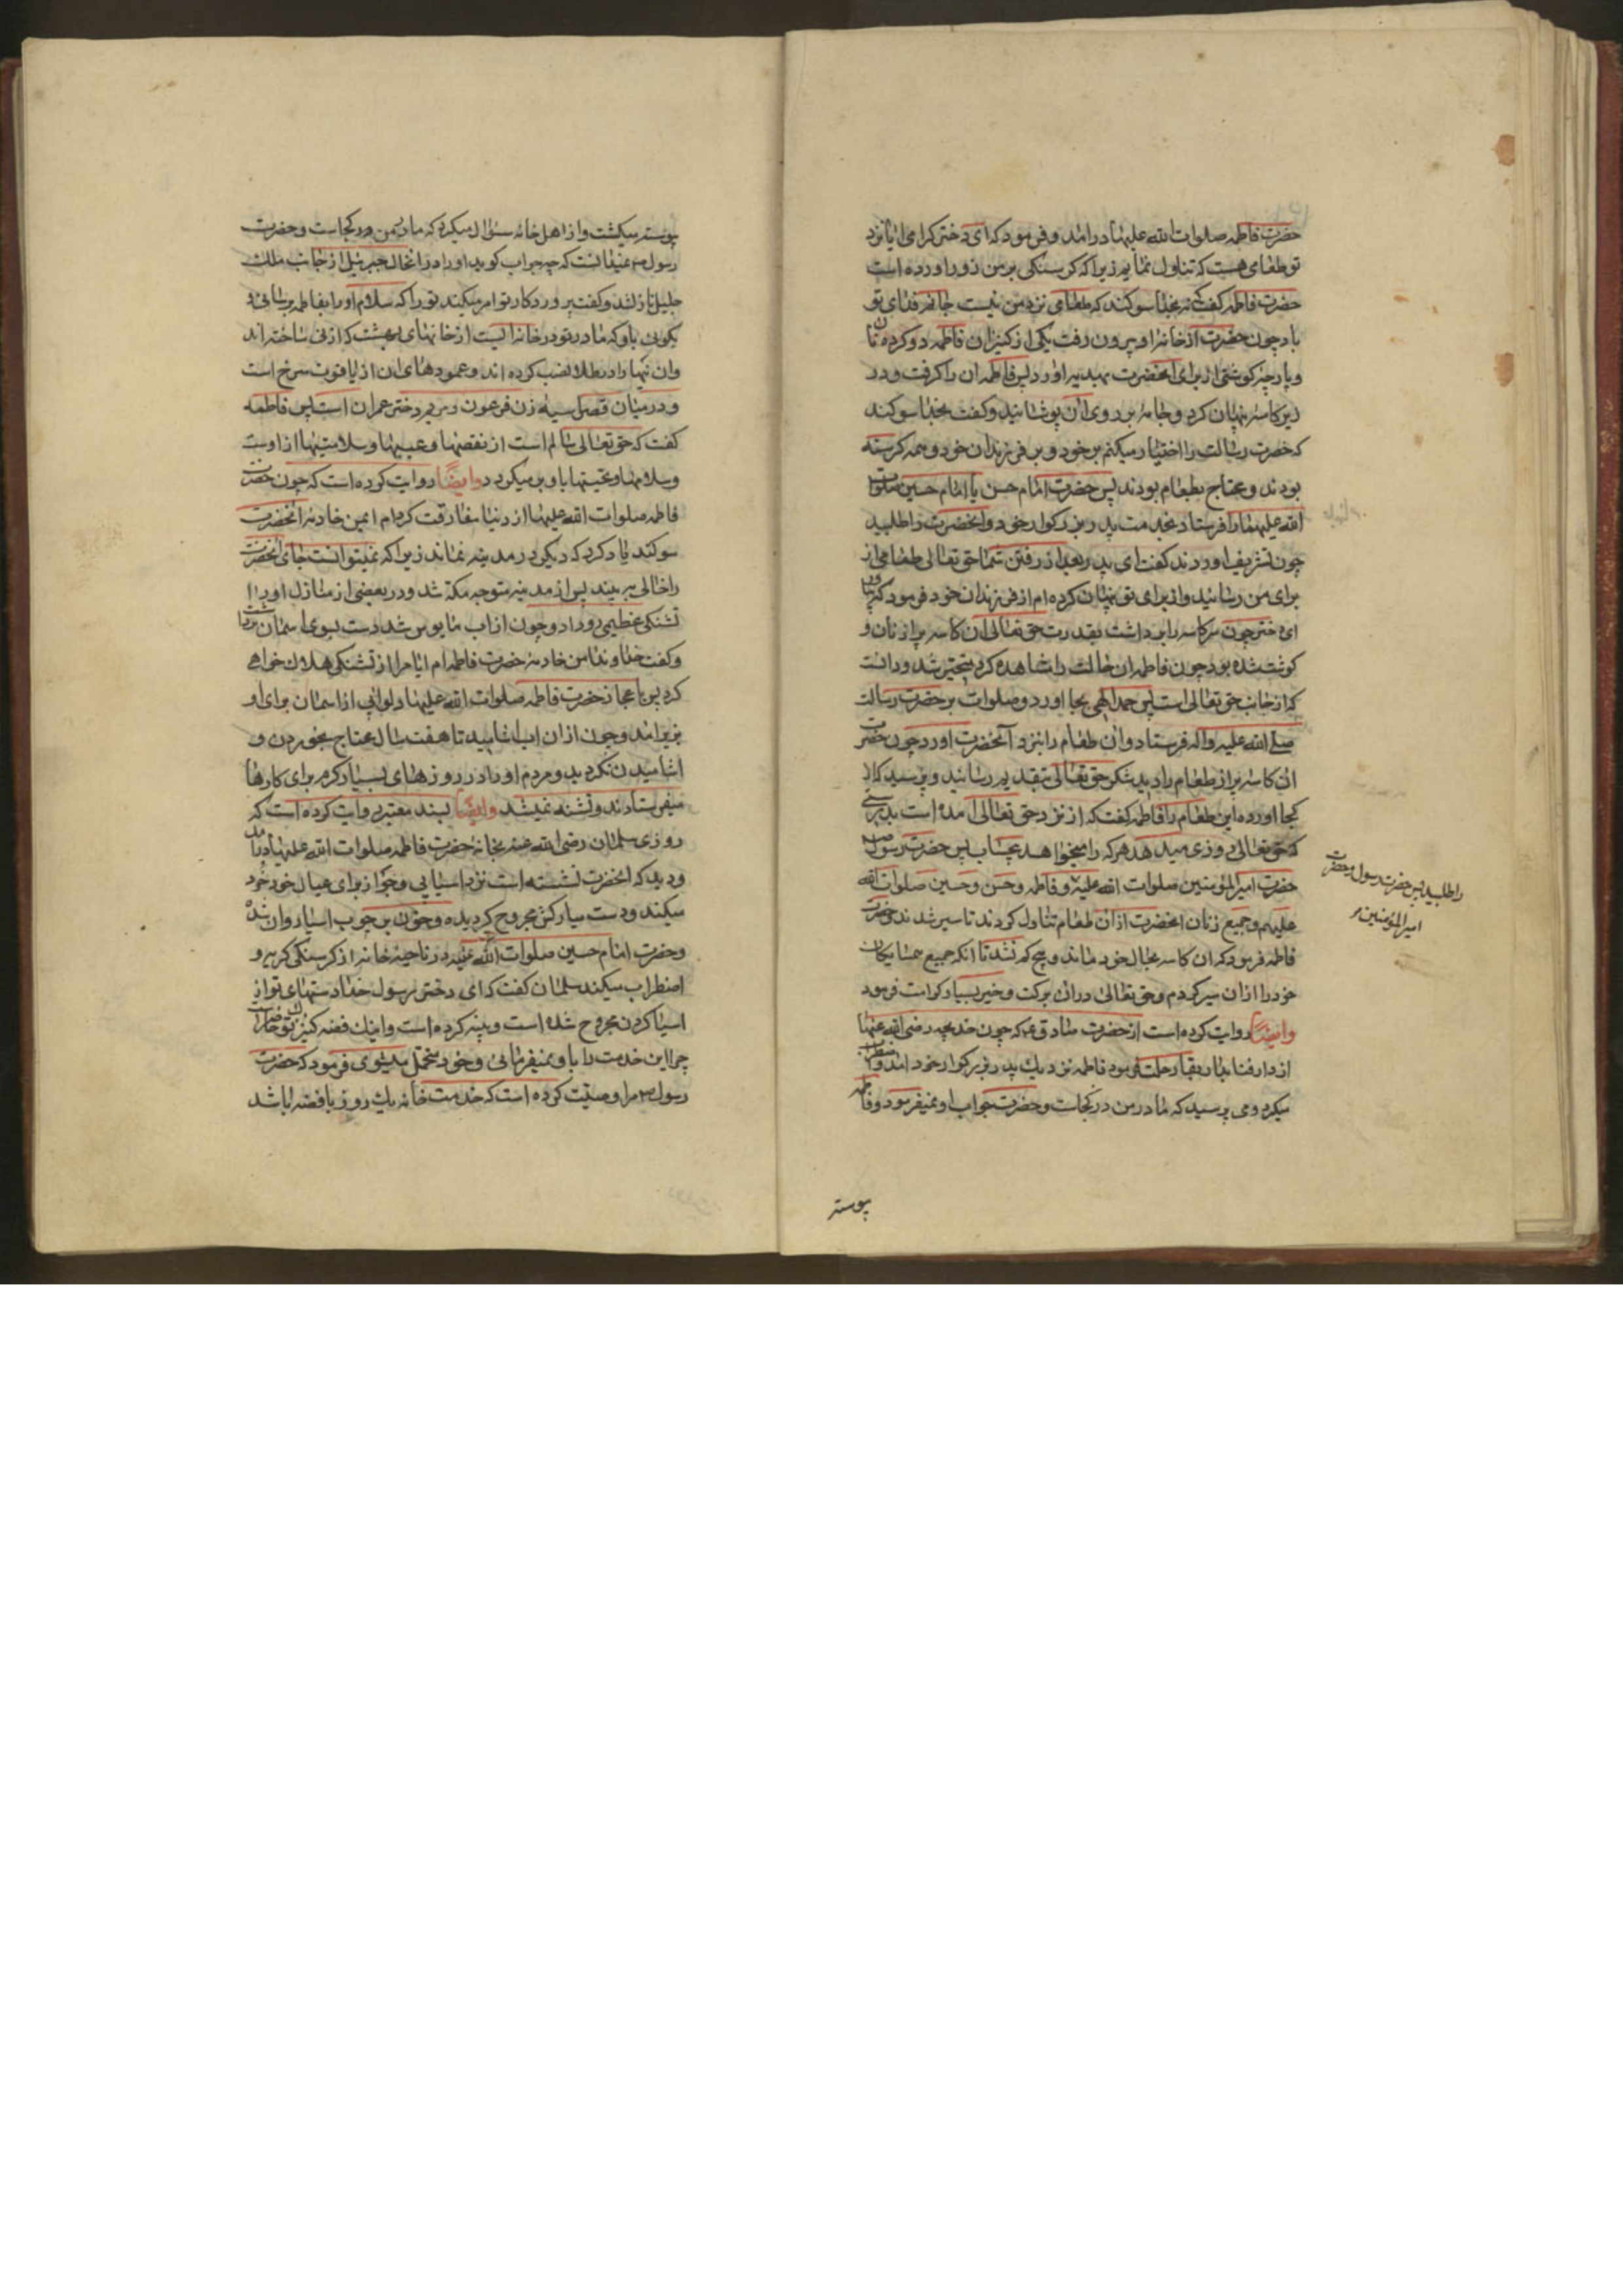 حضرت فاطمه صلوات الله علیها درآمد و فرمود که ای دختر گرامی ایا نزد
تو طعامی هست که تناول نمایم زیرا که گرسنگی بر من زور اورده است
حضرت فاطمه گفت نه بخدا سوگند که طعامی نزد من نیست جانم فدای تو
باد چون حضرت از خانه او بیرون رفت یکی از کنیزان فاطمه دو کرده نان
و پارچه کوشتی از برای انحضرت بهدیه اورد پس فاطمه ان را گرفت و در
زیر کاسه پنهان کرد و جامه بر روی ان پوشانید و گفت بخدا سوکند
که حضرت رسالت را اختیار میکنم بر خود و بر فرزندان خود و همه گرسنه
بودند و محتاج بطعام بودند پس حضرت امام حسن یا امام حسین صلوات
الله علیهما را فرستاد بخدمت پدر بزرگوار خود و انحضرت را طلبید
چون تشریف اوردند گفت ای پدر بعد از رفتن شما حق تعالی طعامی از
برای من رسانید و از برای تو پنهان کرده ام از فرزندان خود فرمود که بیاور
ای دختر چون سر کاسه را برداشت بقدرت حق تعالی ان کاسه پر از نان و
کوشت شده بود چون فاطمه ان حالت را مشاهده کرد متحیر شد و دانست
که از جانب حق تعالی است پس حمد الهی بجا اورد و صلوات بر حضرت رسالت
صلی الله علیه واله فرستاد و ان طعام را بنزد آنحضرت اورد چون حضرت
ان کاسه پر از طعام را دید شکر حق تعالی بتقدیم رسانید و پرسید که از
کجا اورده این طعام را فاطمه گفت که از نزد حق تعالی امده است بدرستی
که حق تعالی روزی میدهد هر که را میخواهد بیحساب پس حضرت رسول ص
را طلبید پس حضرت رسول و حضرت
امیر المؤمنین
حضرت امیر المؤمنین صلوات الله علیه و فاطمه و حسن و حسین صلوات الله
علیهم و جمیع زنان انحضرت از ان طعام تناول کردند تا سیر شدند و حضرت
فاطمه فرمود که ان کاسه بحال خود ماند و هیچ کم نشد تا انکه جمیع همسایکان
خود را از ان سیر کردم و حق تعالی در ان برکت و خیر بسیار کرامت فرمود
وایضا روایت کرده است از حضرت صادق ع که چون خدیجه رضی الله عنها
از دار فنا بدار بقا رحلت فرمود فاطمه نزدیک پدر بزرگوار خود امد و اضطراب
میکرد و می پرسید که مادر من در کجاست و حضرت جواب او نمیفرمود و فاطمه
پیوسته
پیوسته میکشت و از اهل خانه سئوال میکرد که مادر من در کجاست و حضرت
رسول ص نمیدانست که چه جواب کوید او را در انحال جبرئیل از جانب ملک
جلیل نازل شد و گفت پروردکار تو امر میکند تو را که سلام او را بفاطمه برسانی و
بگویی باو که مادر تو در خانه ایست از خانهای بهشت که از نی ساخته اند
وان نیها را در طلا نصب کرده اند و عمودهای ان از یاقوت سرخ است
و در میان قصر اسیه زن فرعون و مریم دختر عمران است پس فاطمه
گفت که حق تعالی سالم است از نقصها و عیبها و سلامتیها از اوست
و سلامها و تحیتها باو بر میکردد وایضا روایت کرده است که چون حضرت
فاطمه صلوات الله علیها از دنیا مفارقت کرد ام ایمن خادمه انحضرت
سوکند یاد کرد که دیکر در مدینه نماند زیرا که نمیتوانست جای انحضرت
را خالی به بیند پس از مدینه متوجه مکه شد و در بعضی از منازل او را
تشنکی عظیمی رو داد و چون از اب مایوس شد دست بسوی اسمان برداشت
و گفت خداوندا من خادمه حضرت فاطمه ام ایا مرا از تشنکی هلاک خواهی
کرد پس باعجاز حضرت فاطمه صلوات الله علیها دلو ابی از اسمان برای او
بزیر امد و چون از ان اب اشامید تا هفت سال محتاج بخوردن و
اشامیدن نکردید و مردم او را در روزهای بسیار کرم برای کارها
میفرستادند و تشنه نمیشد وایضا بسند معتبر روایت کرده است که
روزی سلمان رضی الله عنه بخانه حضرت فاطمه صلوات الله علیها درآمد
و دید که انحضرت نشسته است نزد اسیایی و جو از برای عیال خود خورد
میکند و دست مبارکش مجروح کردیده و خون بر چوب اسیا روان شده
و حضرت امام حسین صلوات الله علیه در ناحیه خانه از کرسنکی کریه و
اضطراب میکند سلمان گفت که ای دختر رسول خدا دستهای تو از
اسیا کردن مجروح شده است و پینه کرده است و اینک فضه کنیز تو حاضر است
چرا این خدمت را باو نمیفرمائی و خود متحمل میشوی فرمود که حضرت
رسول ص مرا وصیت کرده است که خدمت خانه یک روز با فضه باشد